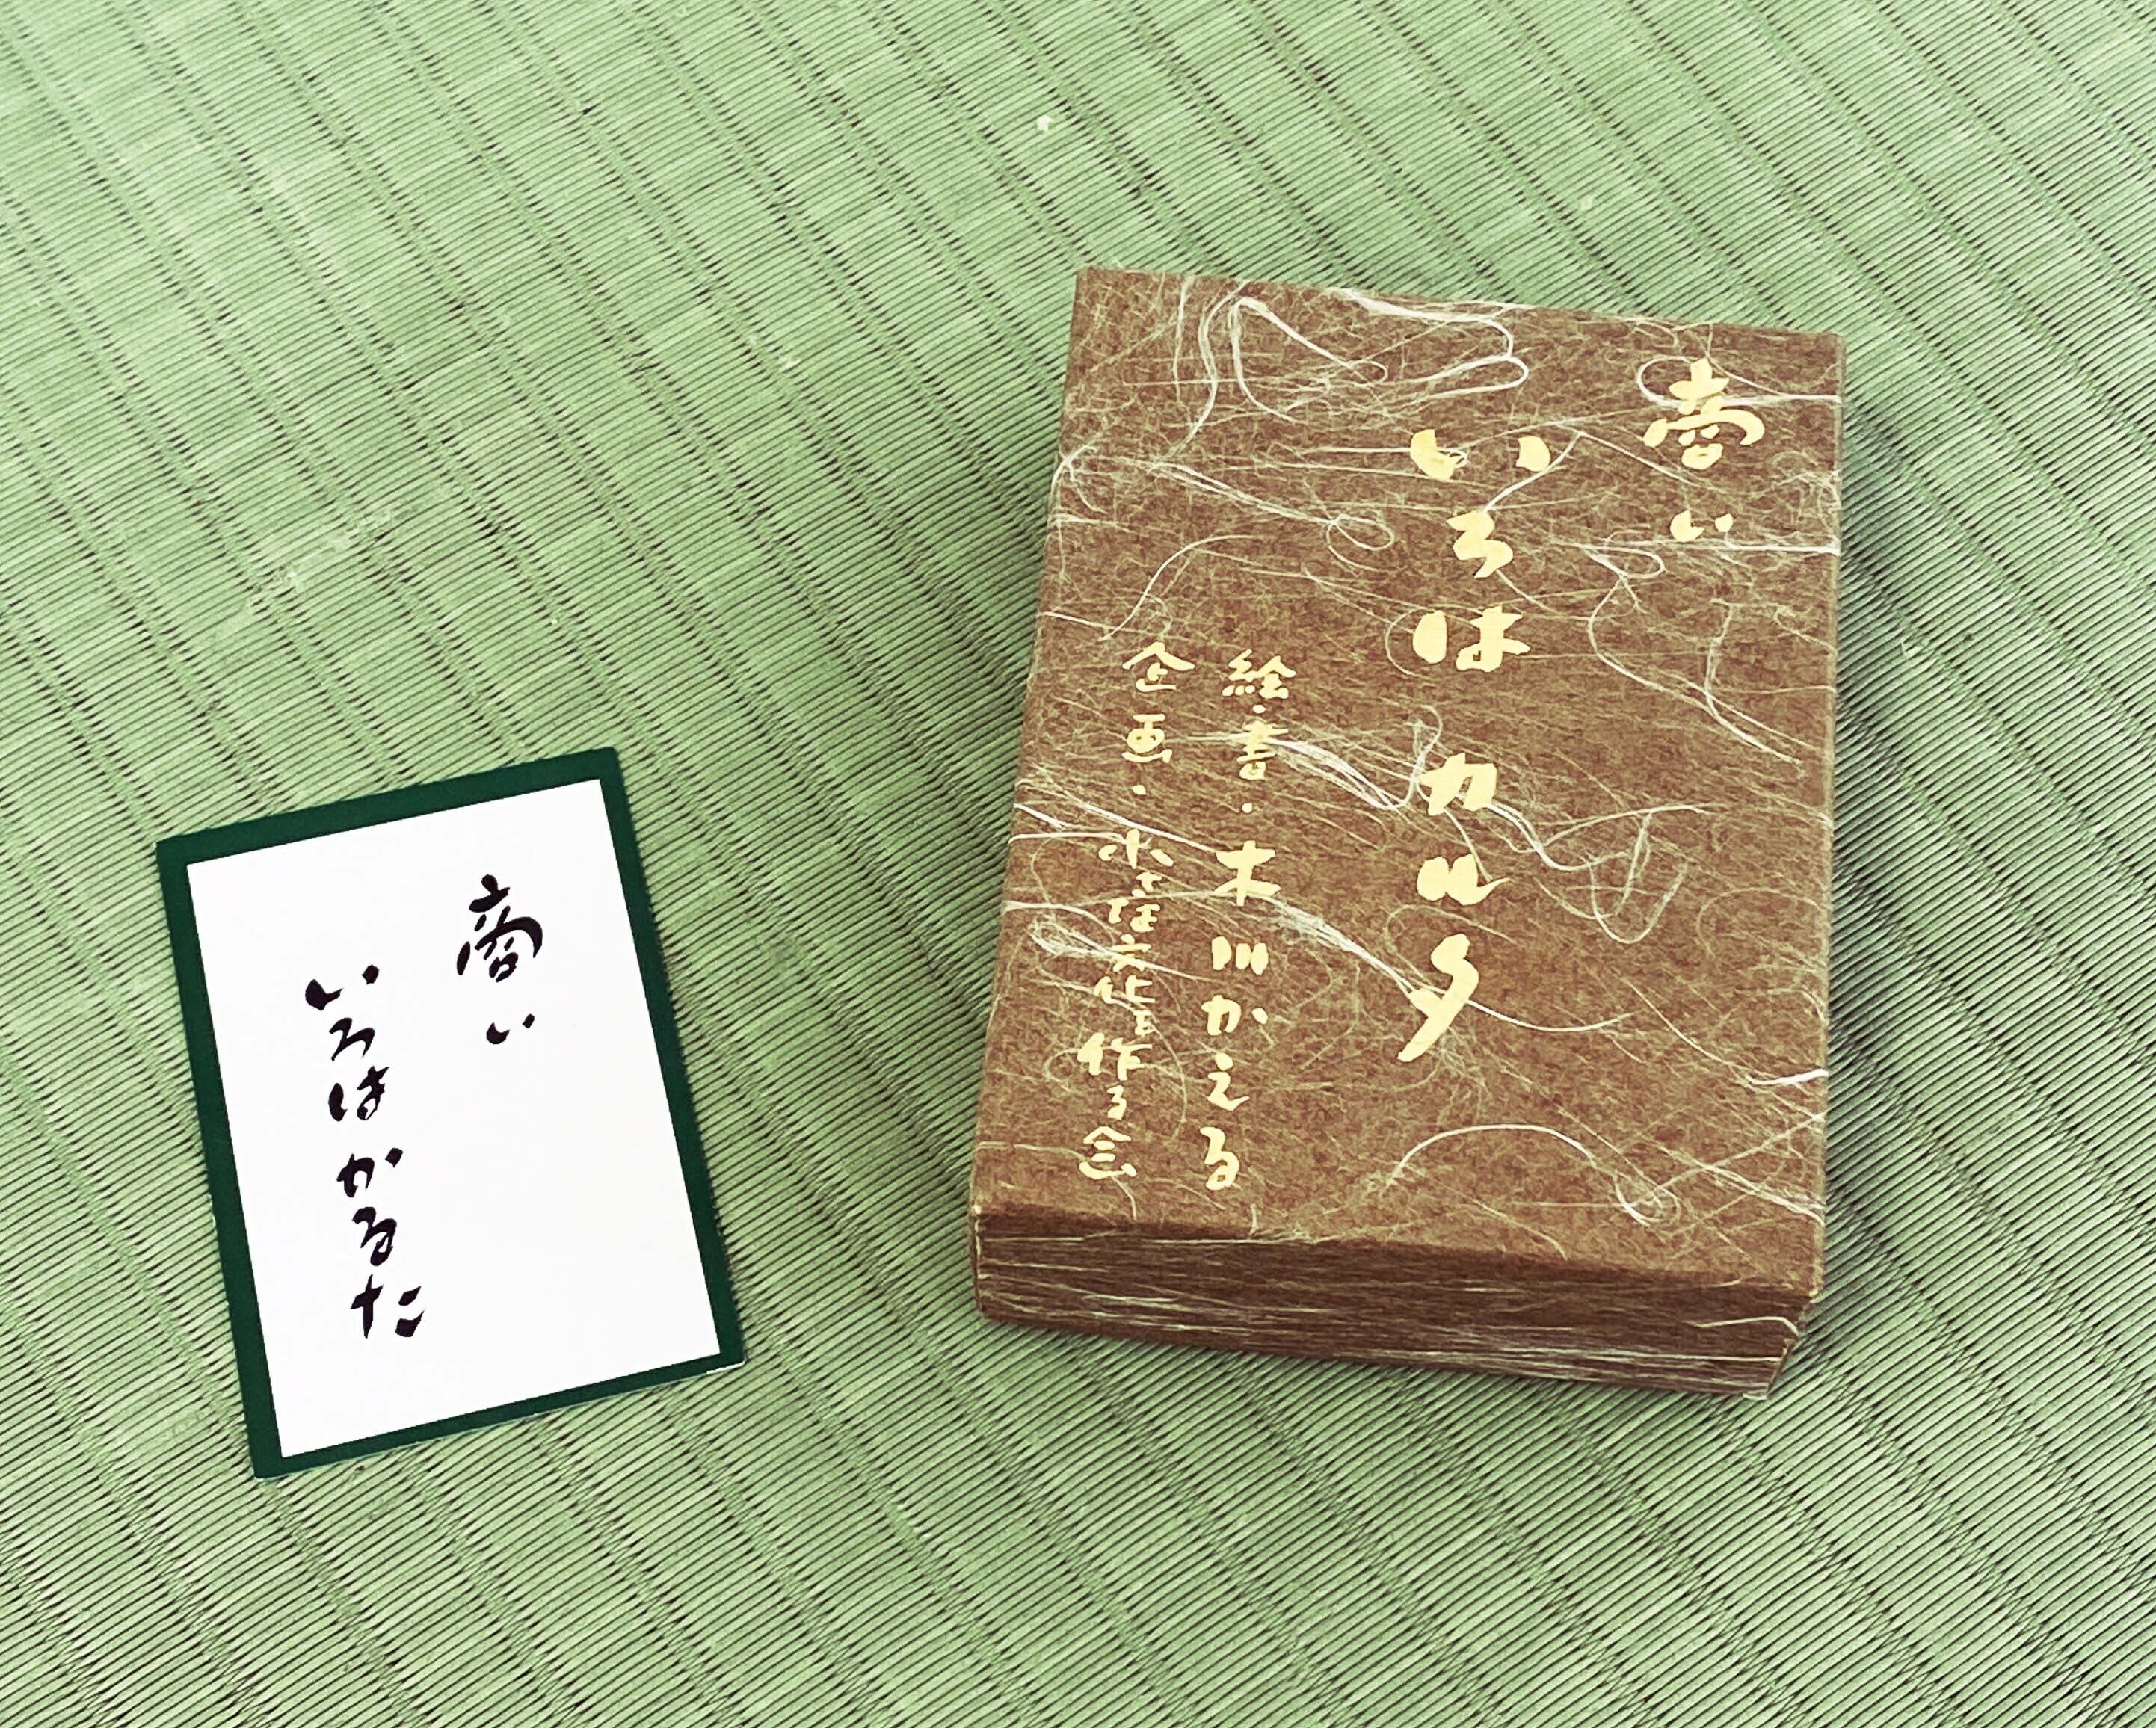 商い
いろはカルタ
絵・書・木川かえる
企画・小さな文化を作る会
商い
いろはかるた